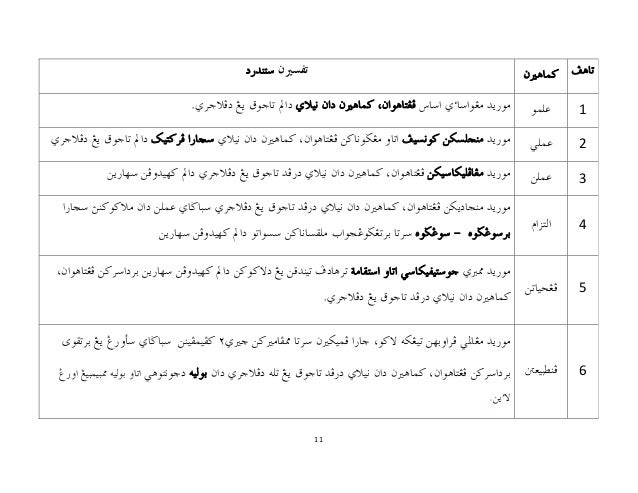 تاهڤ كماهيرن تفسيرن ستندرد
1 علمو موريد مڠواساءي اساس ڤڠتاهوان، كماهيرن دان نيلاي دالم تاجوق يڠ دڤلاجري.
2 عملي موريد منجلسكن كونسيڤ اتاو مڠݢوناكن ڤڠتاهوان، كماهيرن دان نيلاي سچارا ڤركتيک دالم تاجوق يڠ دڤلاجري
3 عملن موريد مڠاڤليكاسيكن ڤڠتاهوان، كماهيرن دان نيلاي درڤد تاجوق يڠ دڤلاجري دالم كهيدوڤن سهارين
4 التزام موريد منجاديكن ڤڠتاهوان، كماهيرن دان نيلاي درڤد تاجوق يڠ دڤلاجري سباݢاي عملن دان ملاكوكنن سچارا
برسوڠݢوه – سوڠݢوه سرتا برتڠݢوڠجواب ملقساناكن سسواتو دالم كهيدوڤن سهارين
5 ڤڠحياتن موريد ممبري جوستيفيكاسي اتاو استقامة ترهادڤ تيندقن يڠ دلاكوكن دالم كهيدوڤن سهارين برداسركن ڤڠتاهوان،
كماهيرن دان نيلاي درڤد تاجوق يڠ دڤلاجري.
6 ڤنطبيعتن موريد مڠالمي ڤراوبهن تيڠكه لاكو، چارا ڤميكيرن سرتا ممڤاميركن چيري٢ كڤيمڤينن سباݢاي سأورڠ يڠ برتقوى
برداسركن ڤڠتاهوان، كماهيرن دان نيلاي درڤد تاجوق يڠ تله دڤلاجري دان بوليه دچونتوهي اتاو بوليه ممبيمبيڠ اورڠ
لاين.
11